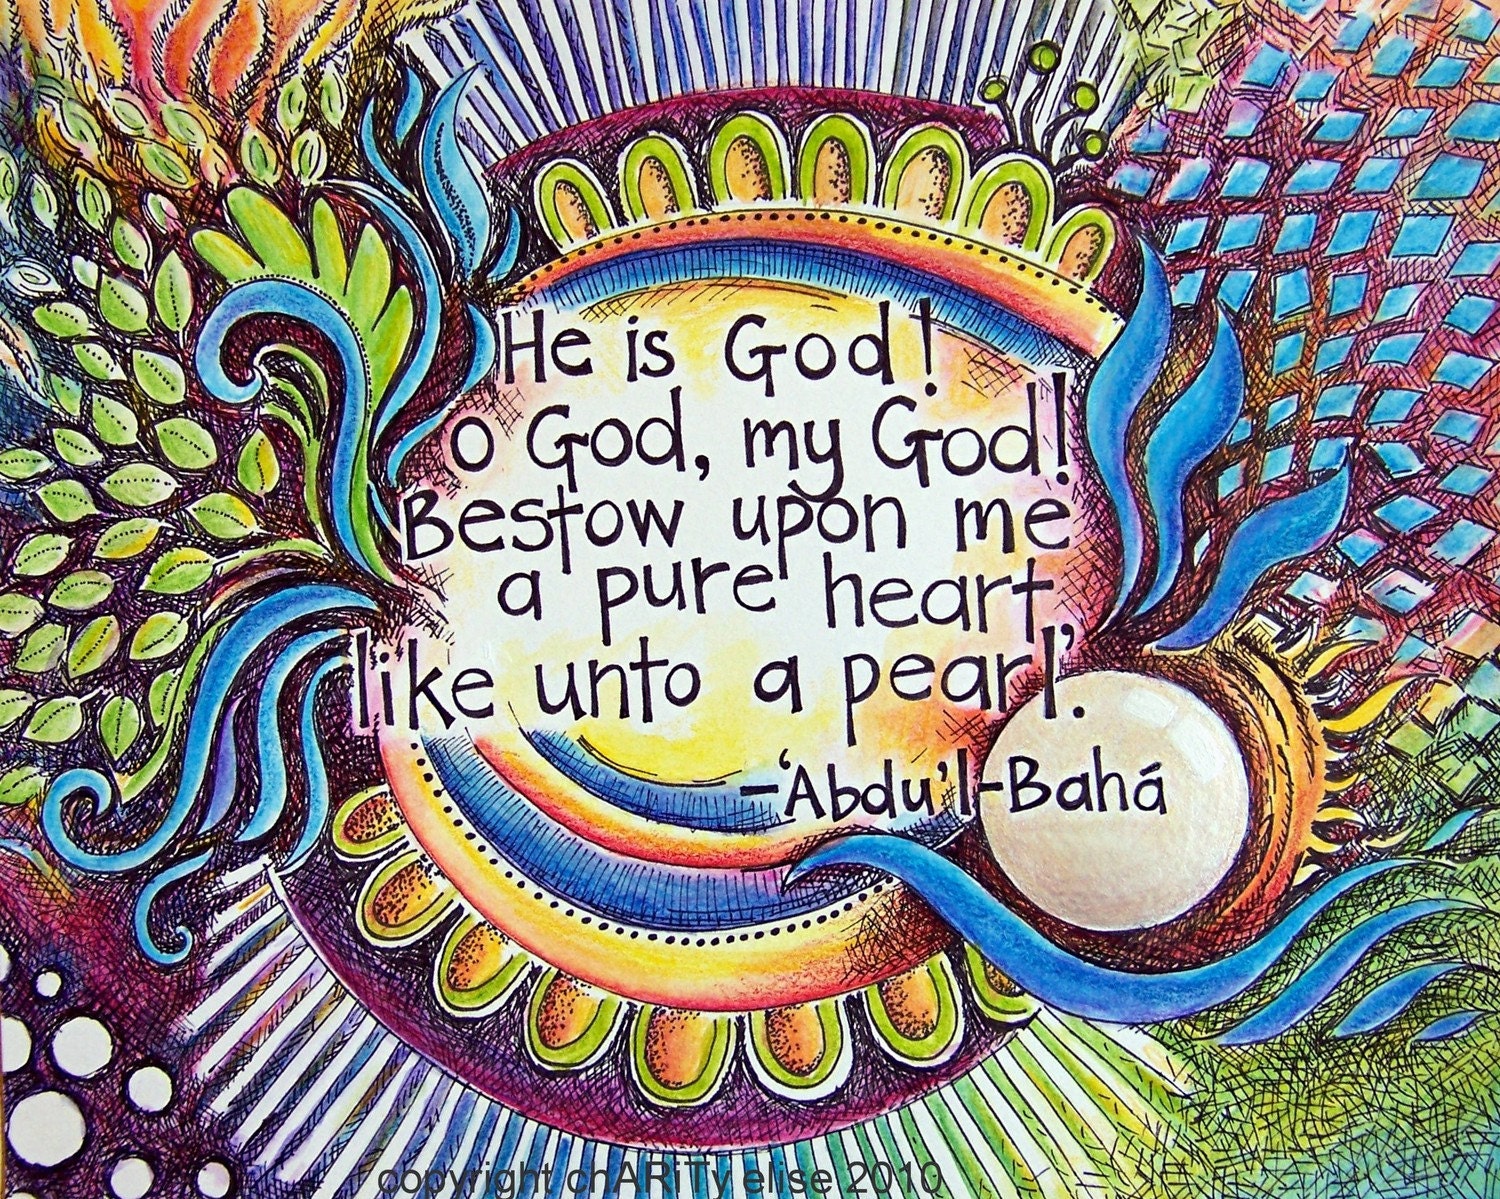 He is God!
o God, my God!
Bestow upon me
a pure heart,
like unto a pearl.
-'Abdu'l-Bahá
copyright chARiTy elise 2010